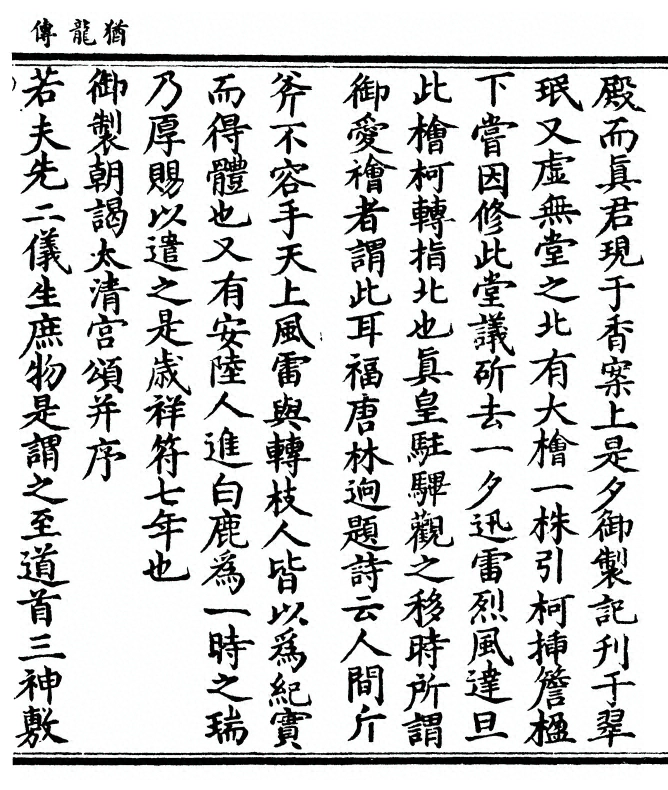 猶龍傳
殿而眞君現于香案上是夕御製記刋于翠
珉又虛無堂之北有大檜一株引柯揷簷楹
下嘗因修此堂議斫去一夕迅雷烈風達旦
此檜柯轉指北也眞皇駐驆觀之移時所謂
御愛禬者謂此耳福唐林逈題詩云人間斤
斧不容手天上風雷與轉枝人皆以爲紀實
而得體也又有安陸人進白鹿爲一時之瑞
乃厚賜以遣之是歲祥符七年也
御製朝謁太清宮頌并序
若夫先二儀生庶物是謂之至道首三神敷